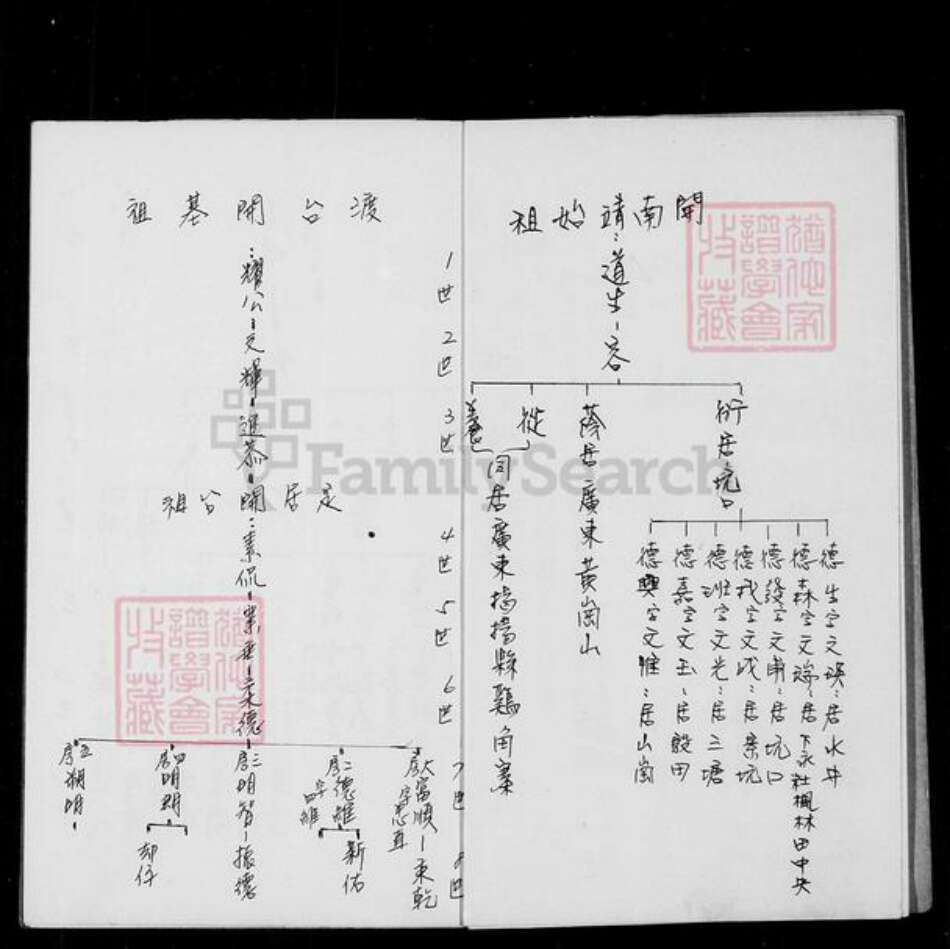 開南靖始祖
道生
容
衍居坑口
德生字文瑛:居水井
德森字文端:居下永社楓林田中央
德發字文甫:居坑口
德戎字文成:居崇坑
德班字文光:居三塘
德嘉字文玉:居殷田
德興字文雅:居山崗
蔭居廣東黃崗山
從
養
同居廣東揭揚縣鷄角寨
渡台開基祖
1世
2世
3世
4世
5世
6世
7世
8世
耀公
元輝
進恭
開居足公祖
素侃
大房富順
字忠直
東乾
二房德雄
新佑
三房明智
振德
四房明朝
却仔
五房朔明
猶他家譜學會收藏
猶他家譜學會收藏
FamilySearch